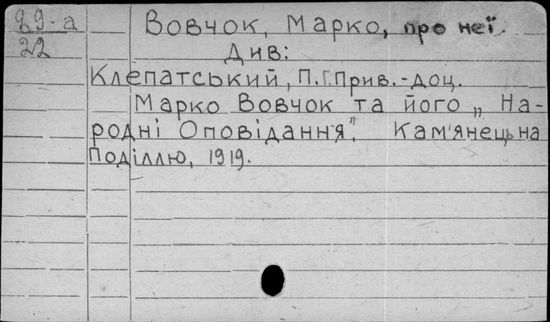 29-а Вовчок, Марко, про неї.
22 Див:
Клепатський, П.Г. Прив.-доц.
Марко Вовчок та його „ На-
родні Оповідання". Кам'янець на
Поділлю, 1919.